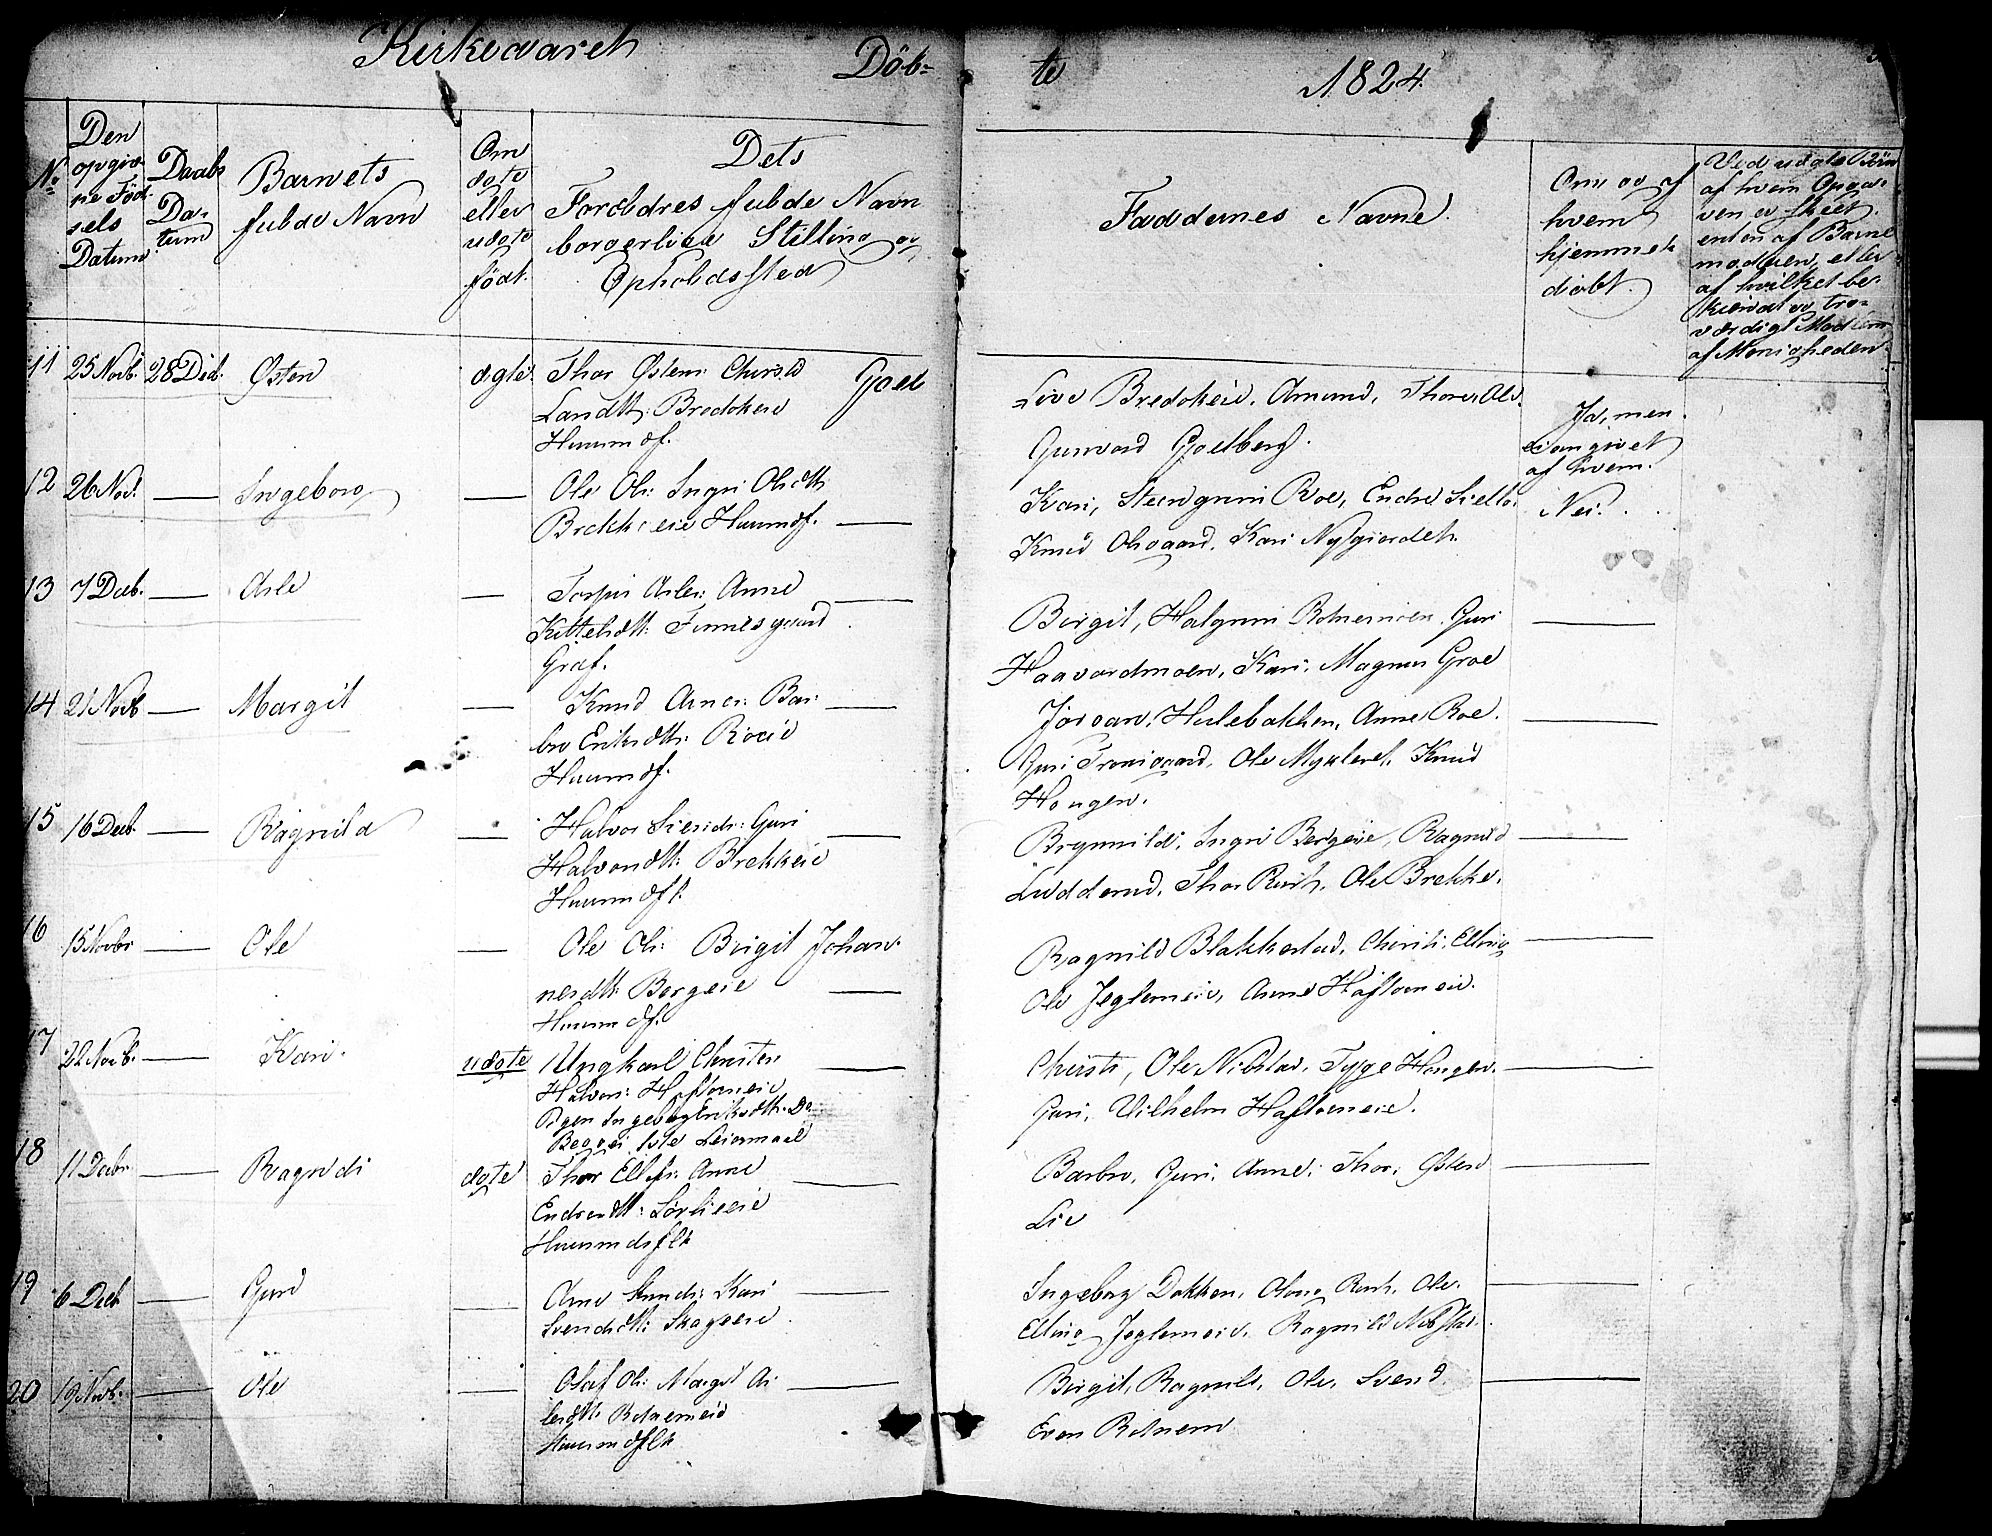 Kirkeaaret Döb= te 1824
No
Den opgiv- ne Föd- sels Datum
Daabs Da- tum
Barnets fulde Navn
Om ægte eller uægte födt.
Dets Forældres fulde Navn borgerlige Stilling og Opholdssted
Faddernes Navne.
Om og af hvem hjemme döbt.
Ved uægte Börn af hvem Opga- ven er skeet. enten af Barne moderen, eller af hvilket be- kiendt og tro- værdigt Medlem af Menigheden
11 25 Novb. 28 Dec. Østen ægte Thor Østens: Gjoel
Landth: Brekkeie
Huusmdf.
Live Brekkeie, Amund, Thore, Ole.
Gunvord Gjoelberg.
Ja, men ei angivet af hvem.
12 26 Nov. — Ingeborg — Ole Ols: Ingri Olsdttr
Brekkeeie Huusmdf. —
Kari, Steingrim Roe, Endre
Knud Olsgaard, Kari Nysgiordeth
Nei.
13 7 Deb. — Asle — Torfin Asles: Anne —
Kittelsdttr: Finnesgaard
Graf.
Birgit, Halgrim Rotnemoen, Guri —
Haavardmoen, Kari, Magnus Groe
14 21 Novb — Margit — Knud Arnes: Bar- —
bro Eriksdttr: Roeeie
Huusmdf.
Jörgan, Hulebakken, Anne Roe. —
Guri Trøeigaard, Ole Myhleret, Knud
Hougen.
15 16 Deb. — Ragnild — Halvor Guri —
Halvorsdttr: Brekkeie
Huusmdflk.
Brynnild, Ingri Bergeie, Ragnild —
Thor Rust, Ole Brekke.
16 15 Novbr — Ole — Ole Ols: Birgit Johan-
nesdttr: Bergeie —
Huusmdf.
Ragnild Blakkestad, Christi, Elling —
Ole Jeglemeie, Anne Haftorneie.
17 22 Novb. — Kari. uægte Ungkarl Christen —
Halvors: Haftorneie
Pigen Ingeborg Eriksdttr. De
Begges 1ste Leiermaal
Christi, Ole Nibstad, Tyge Hougen. —
Guri, Vilhelm Haftorneie.
18 11 Decbr — Ragndi ægte Thor Ellefs: Anne —
Endresdttr: Sørlieeie
Huusmdsflk
Barbro, Guri, Anne, Thor, Østen —
Liv
19 6 Decb — Guri — Arne Knuds: Kari —
Svendsdttr: Skageeie
Ingeborg Dokken, Olaug Rust, Ole. —
Elling Jeglemeie, Ragnild Nibstad.
20 19 Novb. — Ole — Oluf Ols: Margit As- —
lesdttr Rotnemeie
Huusmdflk
Birgit, Ragnild, Ole, Svend —
Even Rotnem